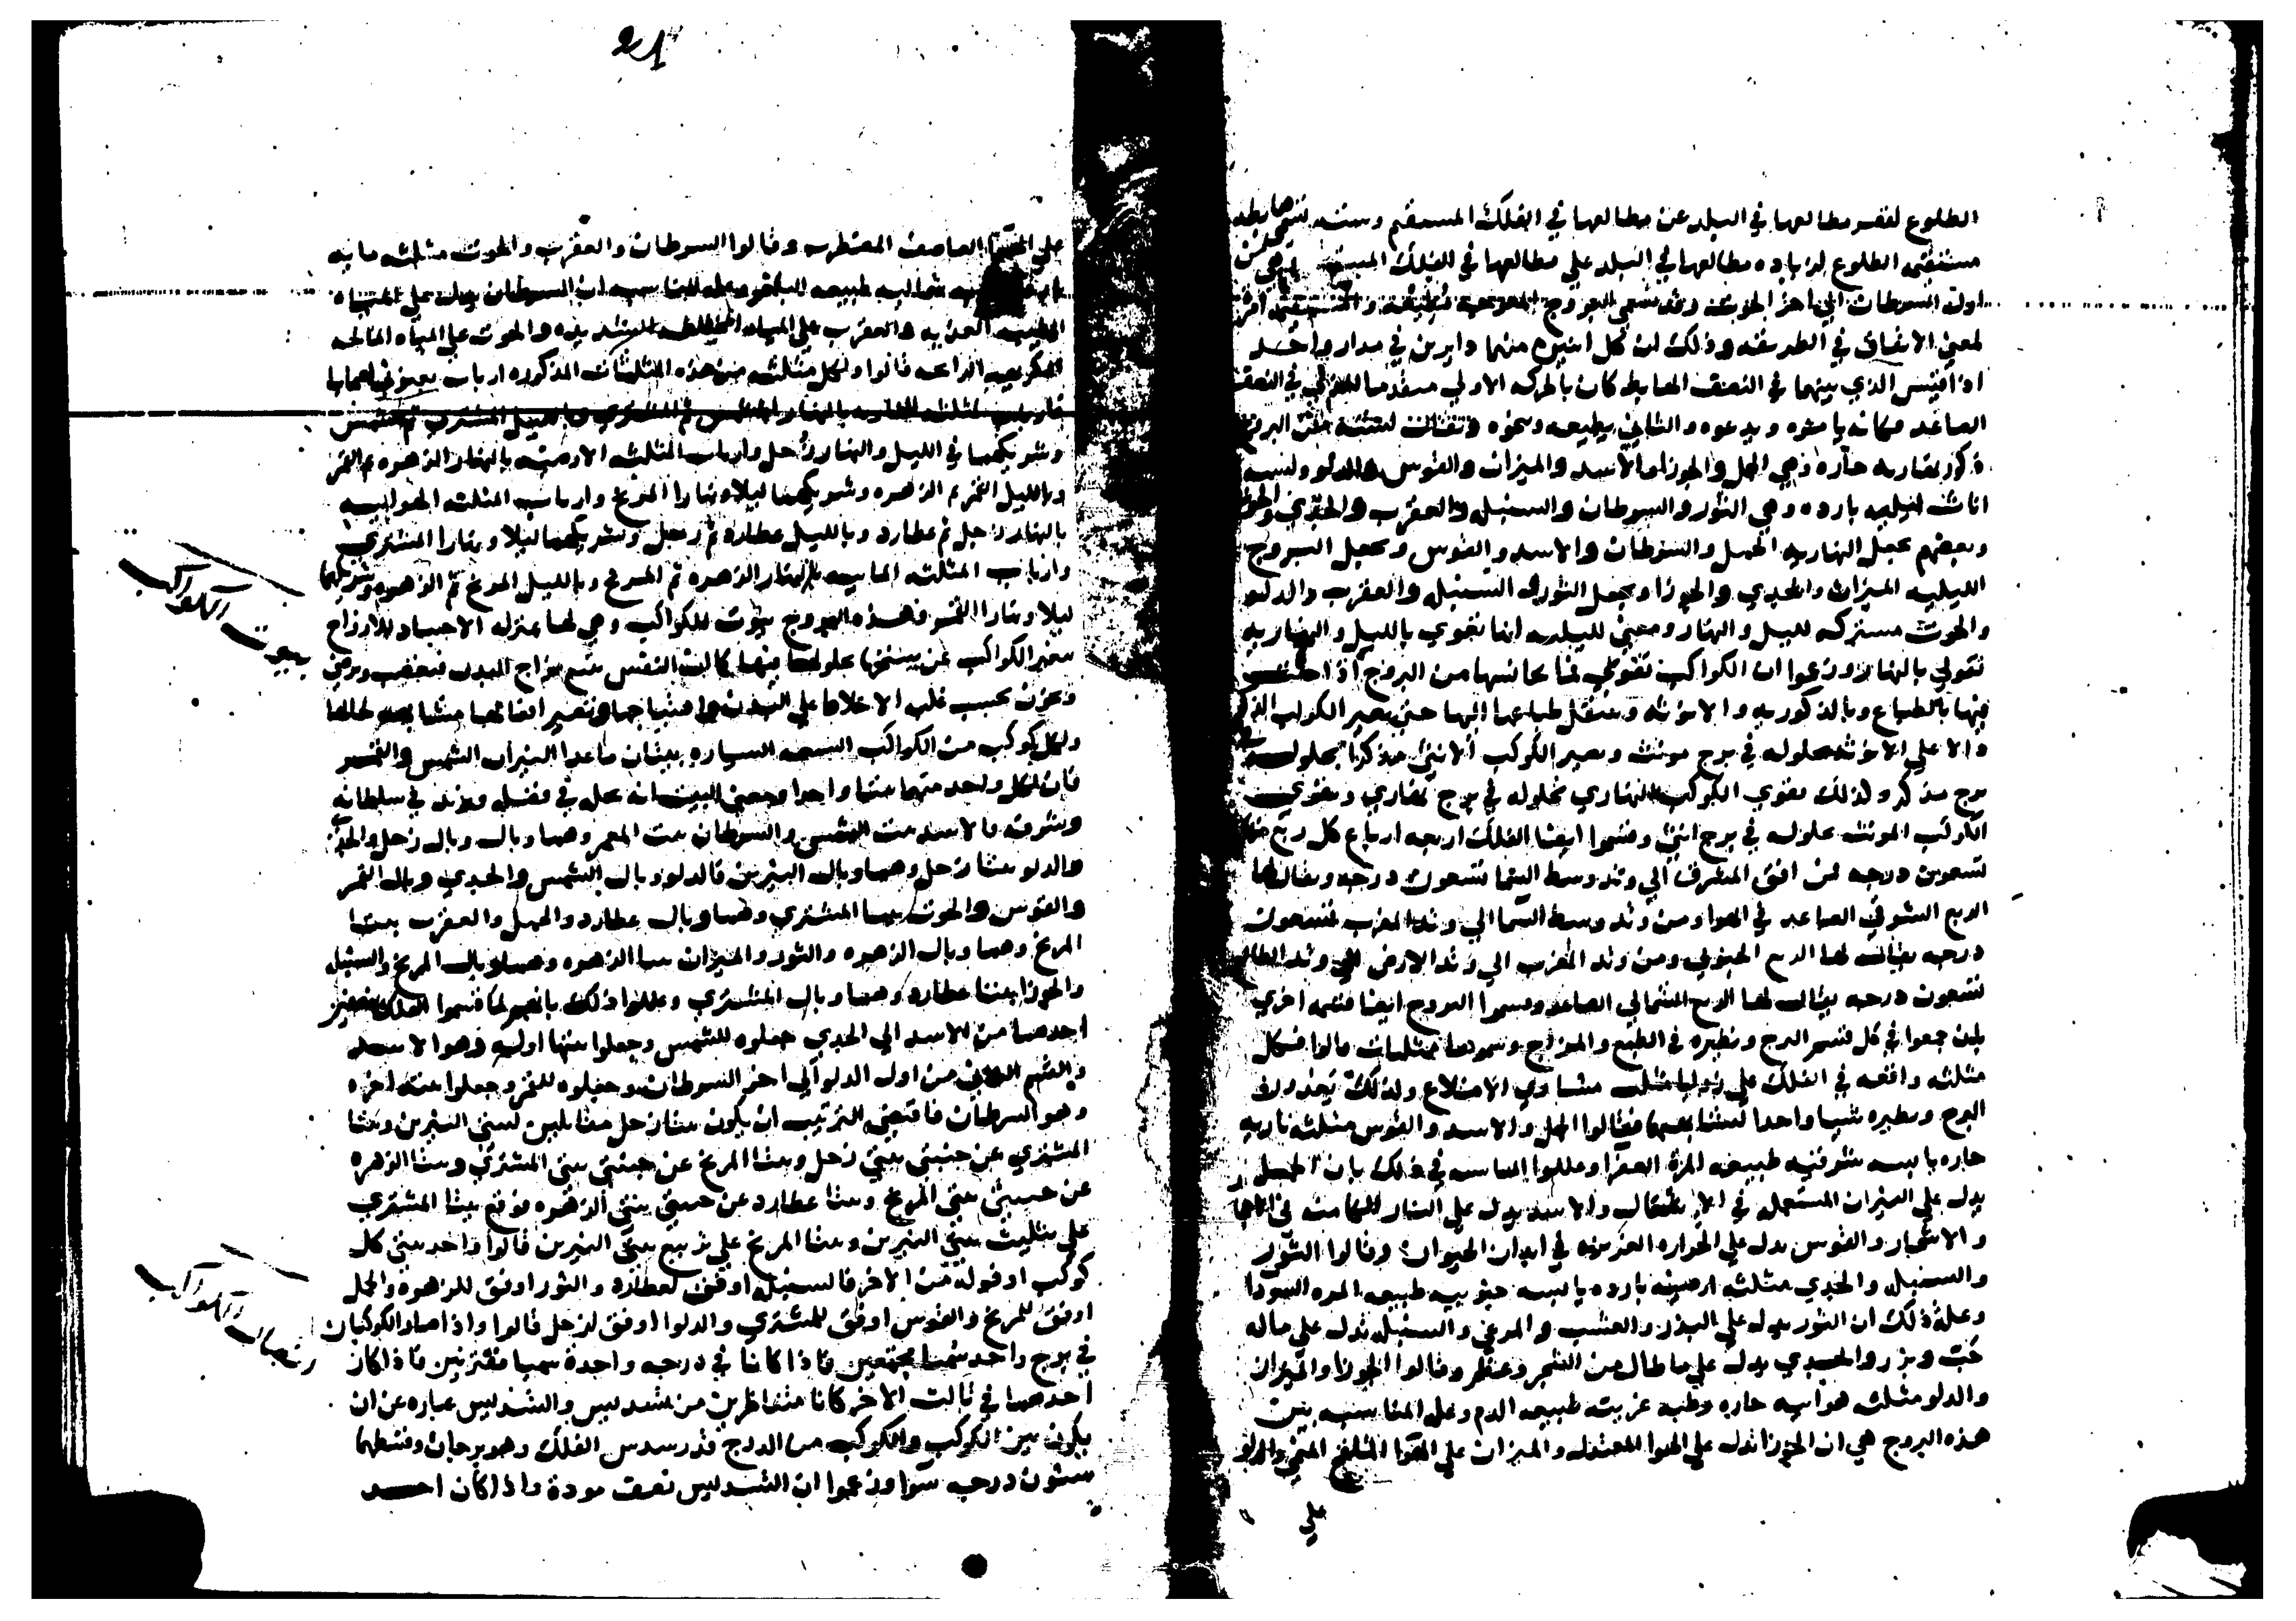 الطلوع لنقص مطالعها في البلد عن مطالعها في الفلك المستقيم وسته
مستقيمه الطلوع لزياده مطالعها في البلد علي مطالعها في الفلك المستقيم وهي من
اول السرطان الي اخر القوس وقد تسمي البروج المعوجه مطيعه والمستقيمه امره
لمعني الاتفاق في الطريقه وذلك ان كل اثنين منهما دايرين في مدار واحد
اذا قيس الذي بينهما في النصف الهابط كان بالحركه الاولي متقدما للذي في النصف
الصاعد فكانه يامره ويدعوه والثاني يطيعه ونحوه وتقال لسته من البروج
ذكور نهاريه حاره وهي الحمل والجوزا والاسد والميزان والقوس والدلو ولسته
اناث ليليه بارده وهي الثور والسرطان والسنبله والعقرب والجدي والحوت
وبعضهم يجعل النهاريه الحمل والسرطان والاسد والقوس ويجعل البروج
الليليه الميزان والجدي والجوزا ويجعل الثور والسنبله والعقرب والدلو
والحوت مشتركه لليل والنهار ومعني لليليه انها تقوي بالليل والنهاريه
تقوي بالنهار وزعموا ان الكواكب تقوي بما يجانسها من البروج اذا
فيها بالطباع وبالذكوريه والانوثه وتنتقل طباعها اليها حتي يصير الكوكب الذكر
دالا علي الانوثه بحلوله في برج مونث ويصير الكوكب الانثي مذكرا بحلوله في
برج مذكر وكذلك تقوي الكوكب النهاري بحلوله في برج نهاري وتقوي
الكوكب المونث بحلوله في برج انثي وقسموا ايضا الفلك اربعه ارباع كل ربع منها
تسعون درجه فمن افق المشرق الي وتد وسط السما تسعون درجه ويقال لها
الربع الشرقي الصاعد في الهوا ومن وتد وسط السما الي وتد المغرب تسعون
درجه يقال لها الربع الجنوبي ومن وتد المغرب الي وتد الارض الي وتد الطالع
تسعون درجه يقال لها الربع الشمالي الصاعد وقسموا البروج ايضا قسمه اخري
بان جمعوا في كل قسم البرج ونظيره في الطبع والمزاج وسموها مثلثات قالوا فكل
مثلثه واقعه في الفلك علي زوايا مثلث متساوي الاضلاع ولذلك يعدون
البرج ونظيره شيا واحدا لتشابههما فقالوا الحمل والاسد والقوس مثلثه ناريه
حاره يابسه شرقيه طبيعه المره الصفرا وعللوا المناسبه في ذلك بان الحمل
يدل علي النيران المستعمله في الاشتعال والاسد يدل علي النار الكامنه في الاحجار
والاشجار والقوس يدل علي الحراره الغريزيه في ابدان الحيوان وقالوا الثور
والسنبله والجدي مثلثه ارضيه بارده يابسه جنوبيه طبيعه المره السودا
وعلة ذلك ان الثور يدل علي البذر والعشب والمرعي والسنبله تدل علي ماله
حب وبزر والجدي يدل علي ما طال من الشجر وعظم وقالوا الجوزا والميزان
والدلو مثلثه هواييه حاره رطبه غربيه طبيعه الدم وعله المناسبه بين
هذه البروج هي ان الجوزا تدل علي الهوا المعتدل والميزان علي الهوا الملقح المنمي والدلو
علي
21
علي الهوا العاصف المضطرب وقالوا السرطان والعقرب والحوت مثلثه ماييه
شماليه طبيعه البلغم وعله المناسبه ان السرطان يدل علي المياه
الطيبه العذبه والعقرب علي المياه والحوت علي المياه المالحه
الكريهه الرايحه قالوا ولكل مثلثه من هذه المثلثات المذكوره ارباب
فارباب المثلثه الناريه بالنهار الشمس ثم المشتري وبالليل المشتري ثم الشمس
وشريكهما في الليل والنهار زحل وارباب المثلثه الارضيه بالنهار الزهره ثم القمر
وبالليل القمر ثم الزهره وشريكهما ليلا ونهارا المريخ وارباب المثلثه الهواييه
بالنهار زحل ثم عطارد وبالليل عطارد ثم زحل وشريكهما ليلا ونهارا المشتري
وارباب المثلثه الماييه بالنهار الزهره ثم المريخ وبالليل المريخ ثم الزهره وشريكهما
ليلا ونهارا القمر وهذه البروج بيوت للكواكب وهي لها بمنزله الاجساد للارواح
بيوت الكواكب
تتغير الكواكب عن سنخها بحلولها فيها كالنفس تتبع مزاج البدن فتغضب وترضي
وتحزن بحسب غلبه الاخلاط علي البدن وتصير افعالها مشابهه لحالها
ولكل كوكب من الكواكب السبعه السياره بيتان ماعدا النيران الشمس والقمر
فان لكل واحد منهما بيتا واحدا ومعني البيت انه محل في وفي سلطانه
وشرفه فالاسد بيت الشمس والسرطان بيت القمر وهما وبال زحل والجدي
والدلو بيتا زحل وهما وبال النيرين فالدلو وبال الشمس والجدي وبال القمر
والقوس والحوت بيتا المشتري وهما وبال عطارد والحمل والعقرب بيتا
المريخ وهما وبال الزهره والثور والميزان بيتا الزهره وهما وبال المريخ والسنبله
والجوزا بيتا عطارد وهما وبال المشتري وعللوا ذلك بانهم لما قسموا الفلك بنصفين
احدهما من الاسد الي الجدي جعلوه للشمس وجعلوا بيتها اوله وهو الاسد
والقسم الثاني من اول الدلو الي اخر السرطان وجعلوه للقمر وجعلوا بيته اخره
وهو السرطان فاقتضي الترتيب ان يكون بيتا زحل مقابلين لبيتي النيرين وبيتا
المشتري عن جنبتي بيتي زحل وبيتا المريخ عن جنبتي بيتي المشتري وبيتا الزهره
عن جنبتي بيتي المريخ وبيتا عطارد عن جنبتي بيتي الزهره فوقع بيتا المشتري
علي تثليث بيتي النيرين وبيتا المريخ علي تربيع بيتي النيرين قالوا واحد بيتي كل
كوكب اوفق له من الاخر فالسنبله اوفق لعطارد والثور اوفق للزهره والحمل
اوفق للمريخ والقوس اوفق للمشتري والدلو اوفق لزحل قالوا واذا صار الكوكبان
اتصال الكواكب
في برج واحد سميا مجتمعين فاذا كانا في درجه واحدة سميا مقترنين فاذا كان
احدهما في ثالث الاخر كانا متناظرين من تسديس والتسديس عباره عن ان
يكون بين الكوكب والكوكب من الدرج قدر سدس الفلك وهو برجان وقسطهما
ستون درجه سوا وزعموا ان التسديس نصف مودة واذا كان احد